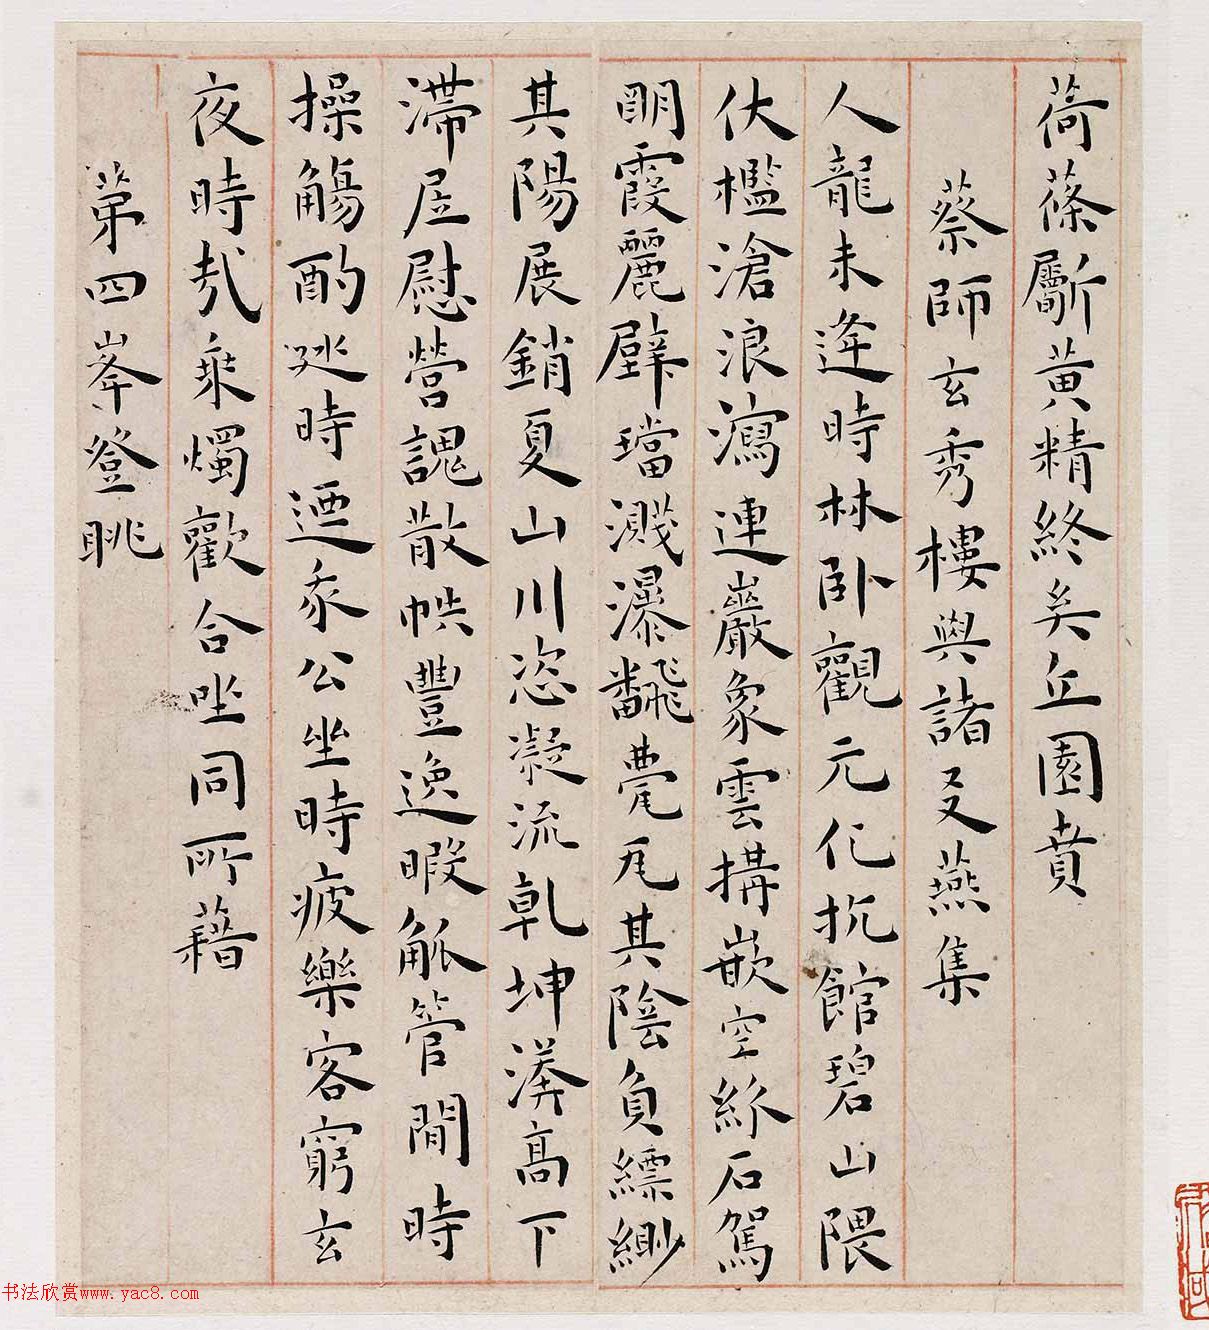 荷蓧斸黃精終矣丘園賁
蔡師玄秀樓與諸友燕集
人龍未逢時林臥觀元化抗館碧山隈
伏檻滄浪瀉連巖象雲搆嵌空絲石駕
明霞麗壁璫濺瀑飜甍瓦其陰負縹緲
其陽展銷夏山川恣凝流乾坤漭高下
滯居慰營謀散帙豐逸暇觚管間時
操觴酌延時迺豕公坐時疲樂客窮玄
夜時哉乘燭歡合坐同所藉
第四峯登眺
书法欣赏www.yac8.com